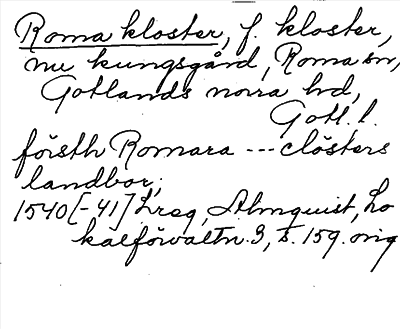 Roma kloster, f. kloster,
nu kungsgård, Roma sn,
Gotlands norra hd,
Gotl. l.
försth Romara --- clösters
landbor,
1540[-41] Lreg, Almquist, Lo
kalförvaltn. 3, s. 159. orig